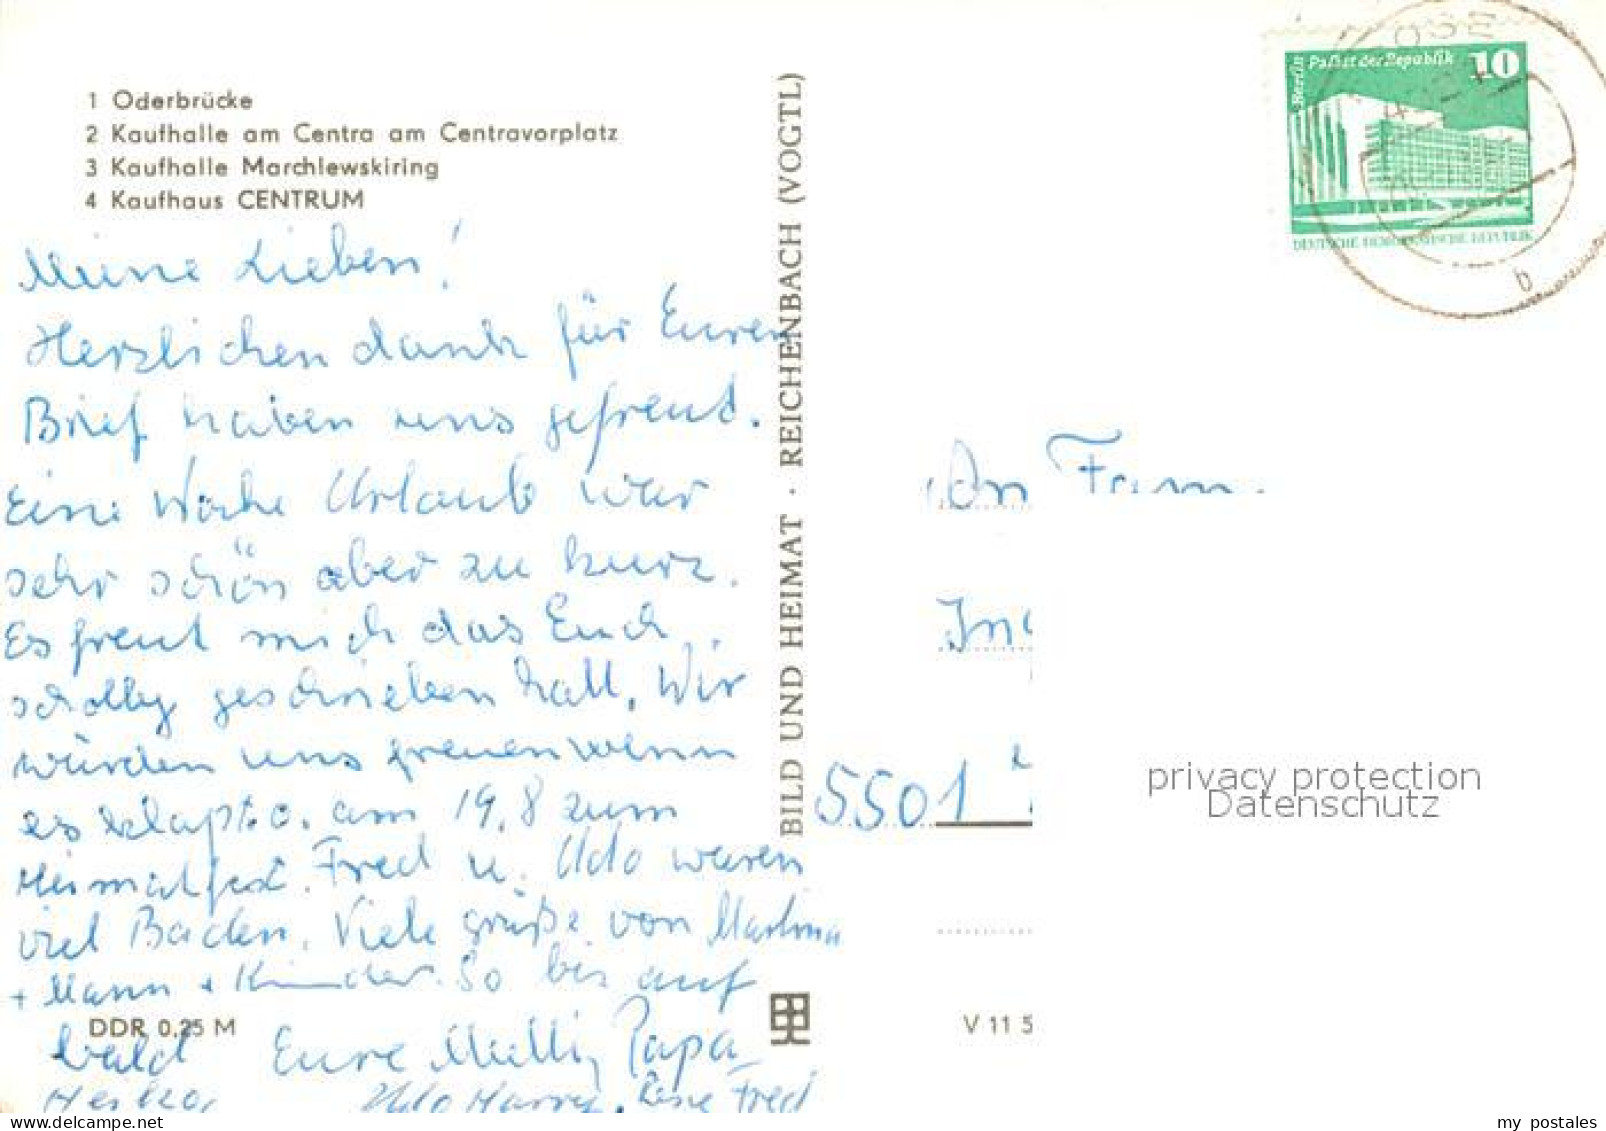 1 Oderbrücke
2 Kaufhalle am Centra am Centravorplatz
3 Kaufhalle Marchlewskiring
4 Kaufhaus CENTRUM
Meine Lieben!
Herzlichen dank für Euren
Brief haben uns gefreut.
Eine Woche Urlaub war
sehr schön aber zu kurz.
Es freut mich das Euch
geschrieben hatt. Wir
würden uns freuen wenn
es klapt. am 19.8 zum
Heimatfest. Fred u. Udo waren
viel Baden. Viele grüße von Martina
+ Mann + Kinder. So bis auf
bald Eure Mutti, Papa
Heiko, Udo Harry, Rene Fred
DDR 0,25 M
BILD UND HEIMAT · REICHENBACH (VOGTL)
V 11 5
Berlin
Palast der Republik
10
DEUTSCHE DEMOKRATISCHE REPUBLIK
b
An Fam.
5501
privacy protection
Datenschutz
my postales